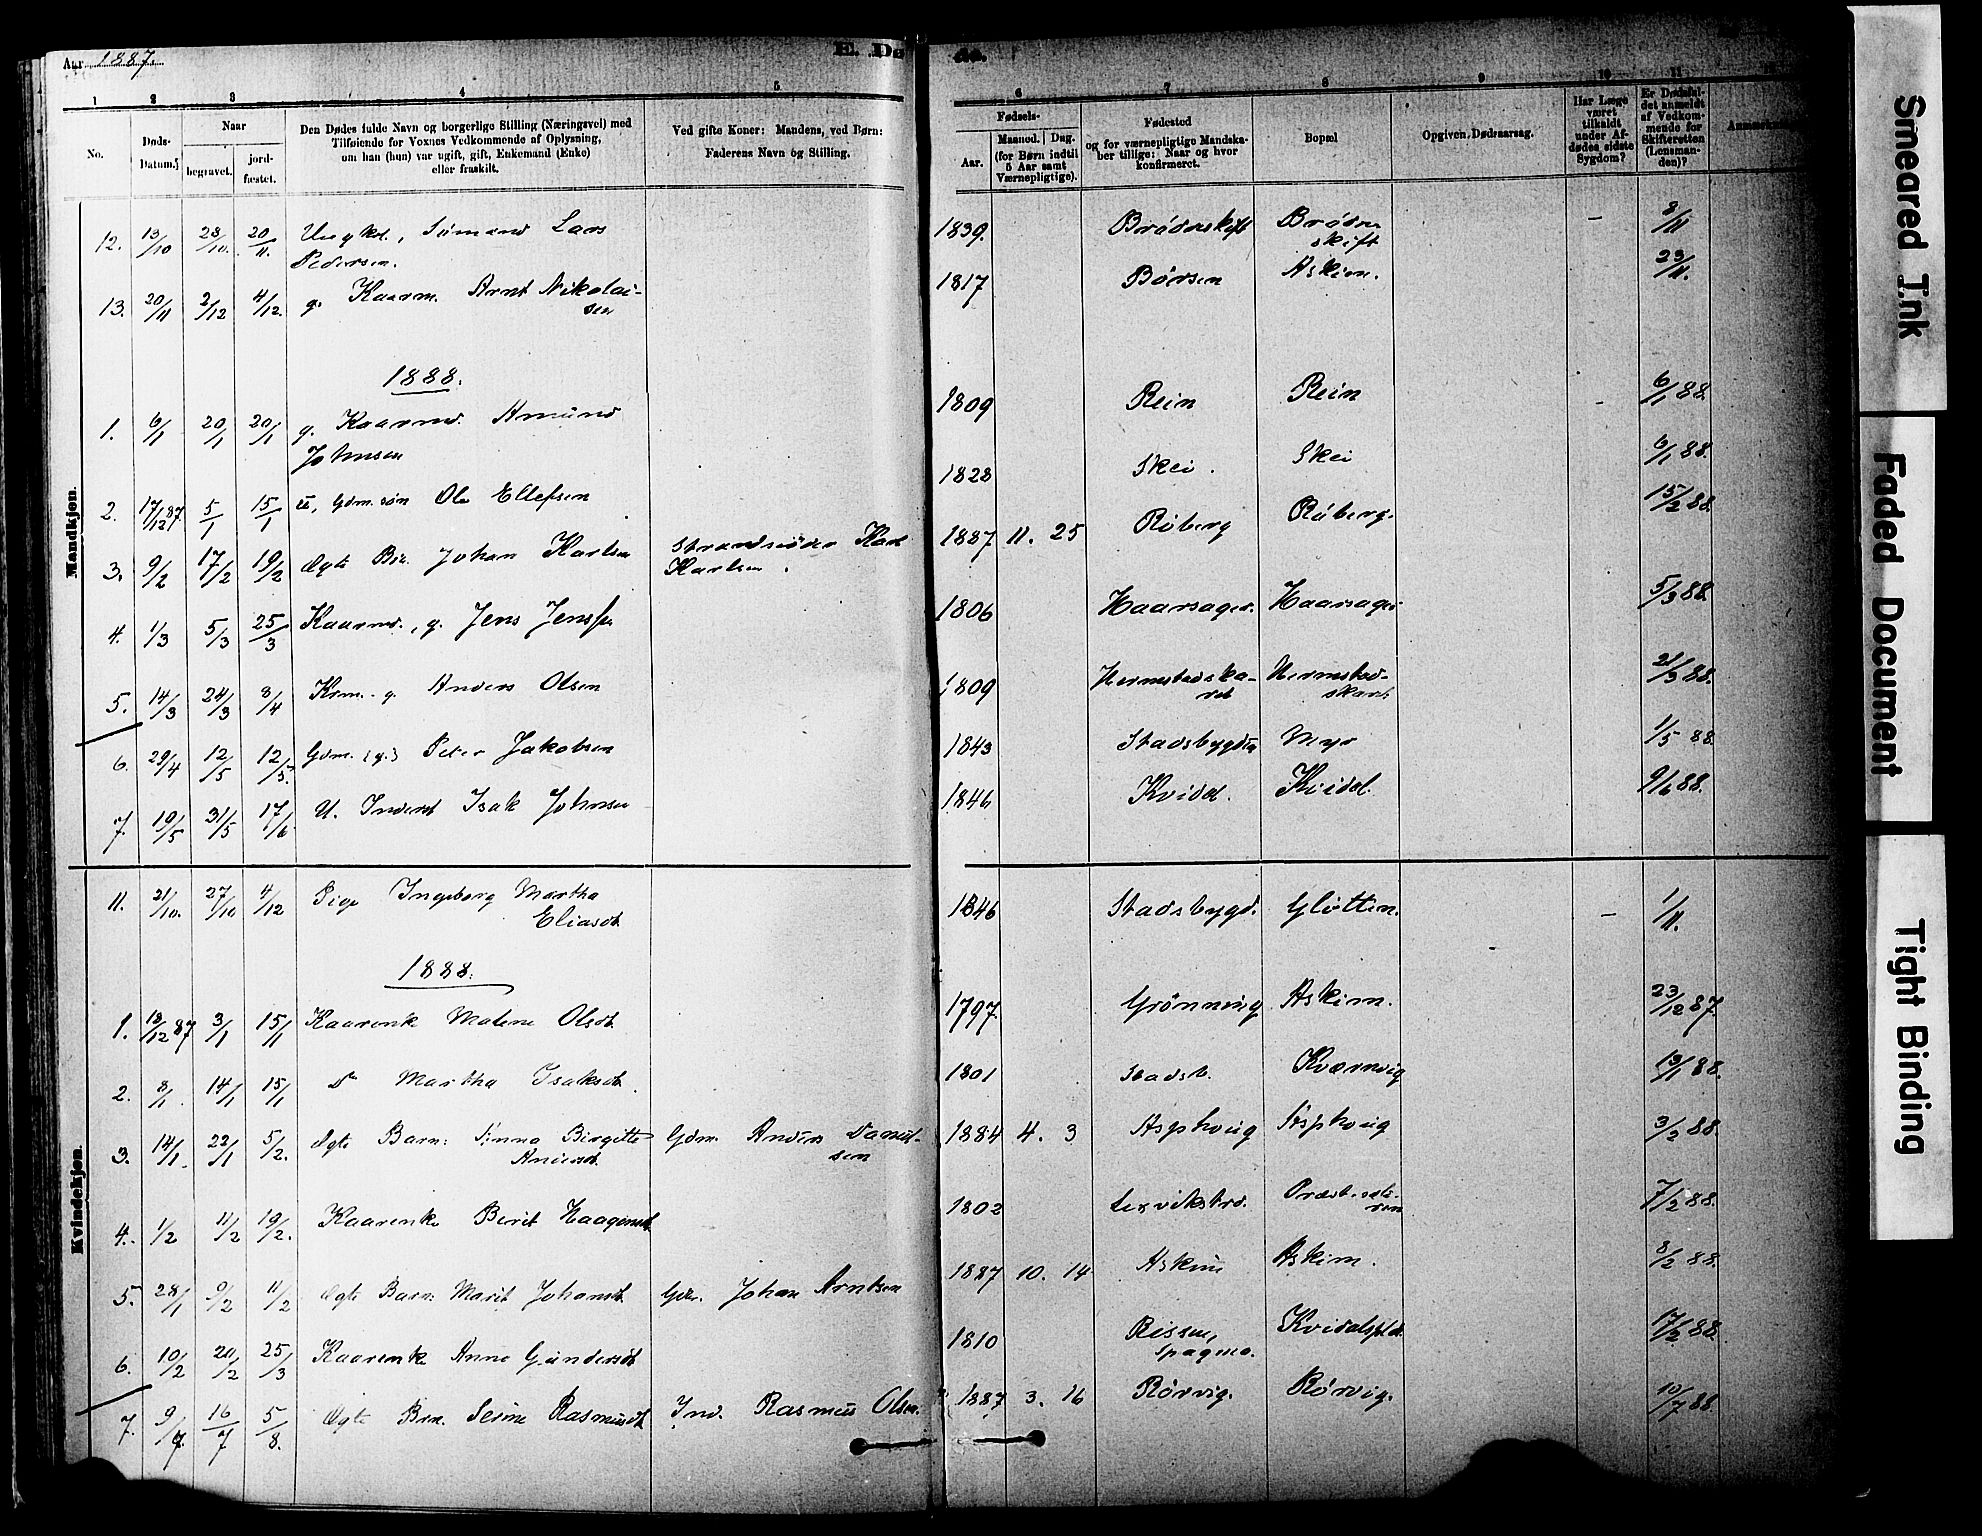 Aar 1887.
E. Dø
de.
1 2 3 4 5 6 7 8 9 10 11
No.
Døds-
Datum.
Naar
begravet.
jord-
fæstet.
Den Dødes fulde Navn og borgerlige Stilling (Næringsvei) med
Tilføiende for Voxnes Vedkommende af Oplysning,
om han (hun) var ugift, gift, Enkemand (Enke)
eller fraskilt.
Ved gifte Koner: Mandens, ved Børn:
Faderens Navn og Stilling.
Fødsels-
Aar.
Maaned. Dag.
(for Børn indtil
5 Aar samt
Værnepligtige).
Fødested
og for værnepligtige Mandska-
ber tillige: Naar og hvor
konfirmeret.
Bopæl.
Opgiven Dødsaarsag.
Har Læge
været
tilkaldt
under Af-
dødes sidste
Sygdom?
Er Dødsfal-
det anmeldt
af Vedkom-
mende for
Skifteretten
(Lensman-
den)?
Mandkjøn.
12. 13/10 28/10. 20/11. Ungkl., Sømand Lars Pedersen. 1839. Brødreskift Brødre skift - 8/11
13. 20/11 2/12 4/12. g. Kaarm. Arnt Nikolai- sen 1817 Børsen Askim. 23/11.
1888.
1. 6/1 20/1 20/1 g. Kaarmd. Amund Johnsen 1809 Rein Rein - 6/1 88.
2. 17/12 87 5/1 15/1 u, Gdm.søn Ole Ellefsen 1828 Skei. Skei 6/1 88.
3. 9/2 17/2 19/2 Ægte Bn. Johan Karlsen Strandsidder Karl Karlsen. 1887 11. 25 Røberg Røberg. 15/2 88.
4. 1/3 5/3 25/3 Kaarmd., g. Jens Jenssen 1806 Haarsager. Haarsager 5/3 88.
5. 14/3 24/3 8/4 Krm. g. Anders Olsen 1809 Hermstadska- ret Hermstad- skaret 21/3 88.
6. 29/4 12/5 12/5. Gdm. (g.) Peter Jakobsen 1843 Stadsbygden Myr 1/5 88.
7. 19/5 31/5 17/6 U. Inderst Isak Johnsen 1846 Kvidal. Kvidal. 9/6 88.
Kvindekjøn.
11. 21/10. 27/10 4/12 Pige Ingeborg Martha Eliasdt. 1846 Stadsbygd. Gløtten. - 1/11.
1888.
1. 18/12 87 3/1 15/1 Kaarenk Malene Olsdt. 1797. Grønning Askim. 23/12 87.
2. 8/1. 14/1 15/1 Do Martha Isaksdt. 1801 Stadsb. Kvernvig 13/1 88.
3. 14/1. 22/1 5/2. Ægte Barn: Anna Birgitte Andersdt. Gdm. Anders Daniel- sen 1884 4. 3 Asphoug Asphoug 3/2 88.
4. 1/2 11/2 19/2. Kaarenke Berit Haagensdt. 1802 Lexvikstrd. 7/2 88.
5. 28/1 9/2 11/2 Ægte Barn Marit Johansdt. Gdr. Johan Arntsen 1887 10. 14 Askim Askim. 8/2 88.
6. 10/2 20/2 25/3 Kaarenk Anne Gundersdt. 1810 Rissen, Kvidalspld. 17/2 88.
7. 9/7. 16/7 5/8. Ægte Brn. Serine Rasmusdt. Ind. Rasmus Olsen. 1887 3. 16 Rørvig. Rørvig. 10/7 88.
Smeared Ink
Faded Document
Tight Binding